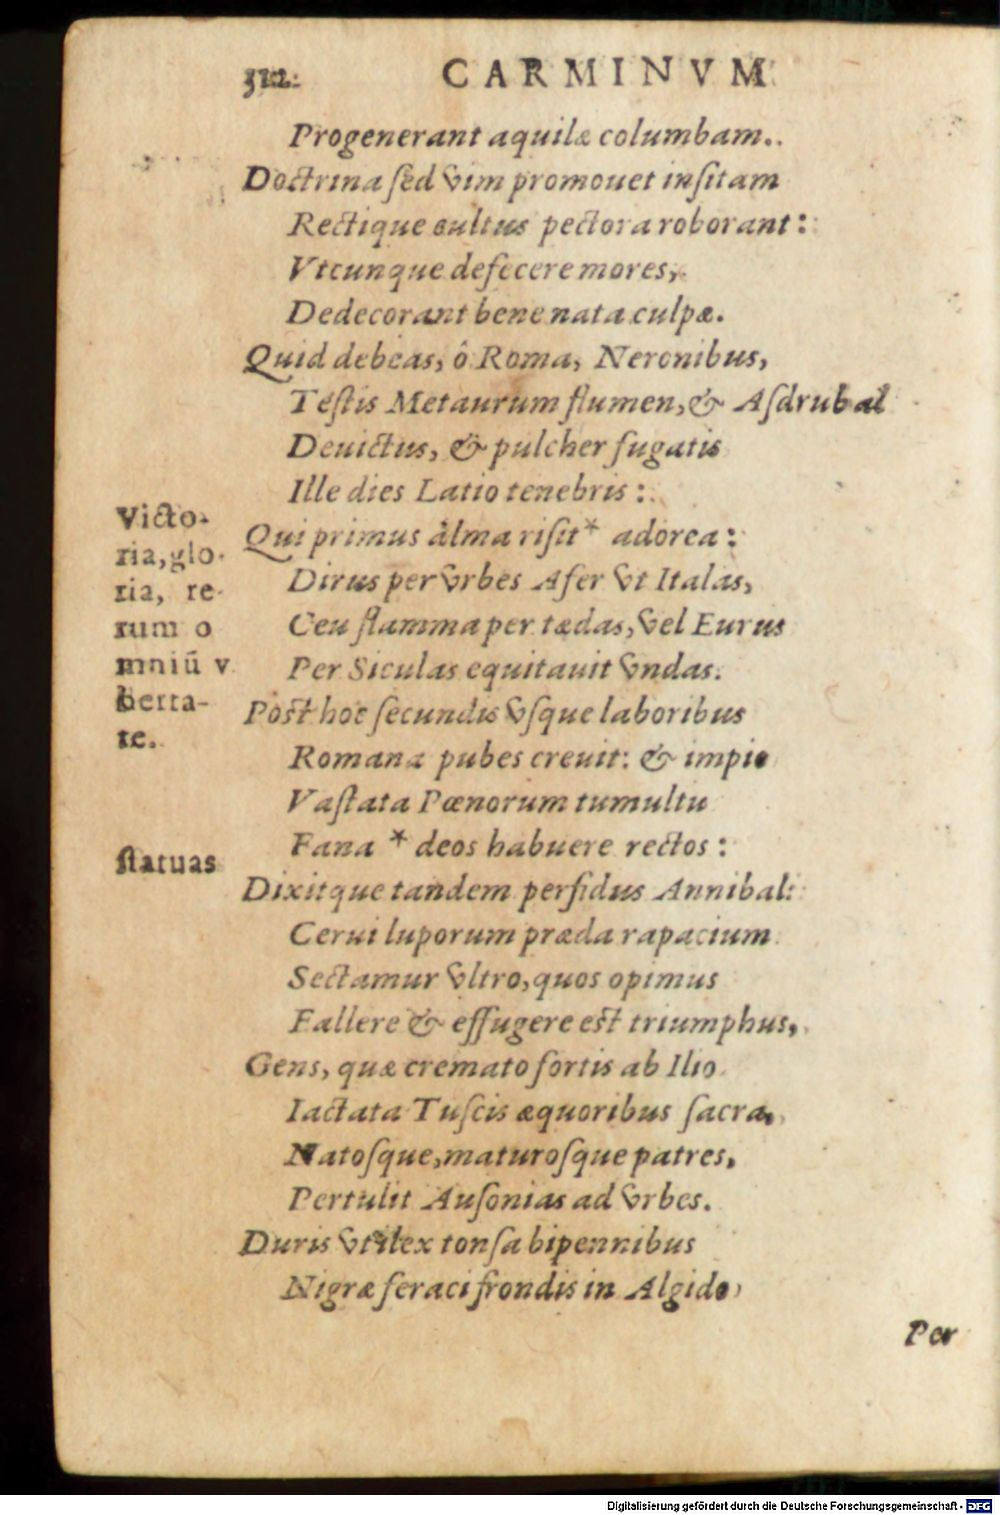 312. CARMINVM
Progenerant aquilæ columbam.
Doctrina ſed vim promouet inſitam
Rectique cultus pectora roborant:
Vtcunque defecere mores,
Dedecorant bene nata culpæ.
Quid debeas, ô Roma, Neronibus,
Teſtis Metaurum flumen, & Aſdrubal
Deuictus, & pulcher fugatis
Ille dies Latio tenebris:
Qui primus alma riſit * adorea:
Dirus per vrbes Afer vt Italas,
Ceu flamma per tædas, vel Eurus
Per Siculas equitauit vndas.
Poſt hoc ſecundis vſque laboribus
Romana pubes creuit: & impio
Vaſtata Pœnorum tumultu
Fana * deos habuere rectos:
Dixitque tandem perfidus Annibal:
Cerui luporum præda rapacium
Sectamur vltro, quos opimus
Fallere & effugere eſt triumphus,
Gens, quæ cremato fortis ab Ilio
Iactata Tuſcis æquoribus ſacra,
Natoſque, maturoſque patres,
Pertulit Auſonias ad vrbes.
Duris vt ilex tonſa bipennibus
Nigræ feraci frondis in Algido,
Per
Victo-
ria, glo-
ria, re-
rum o
mniū v
berta-
te.
ſtatuas
Digitalisierung gefördert durch die Deutsche Forschungsgemeinschaft - DFG